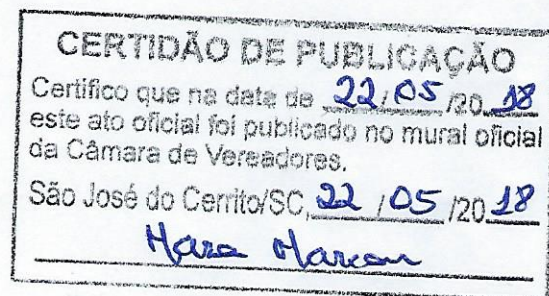 CERTIDÃO DE PUBLICAÇÃO
Certifico que na data de 22/05/2018
este ato oficial foi publicado no mural oficial
da Câmara de Vereadores.
São José do Cerrito/SC, 22/05/2018
Mara Marcon